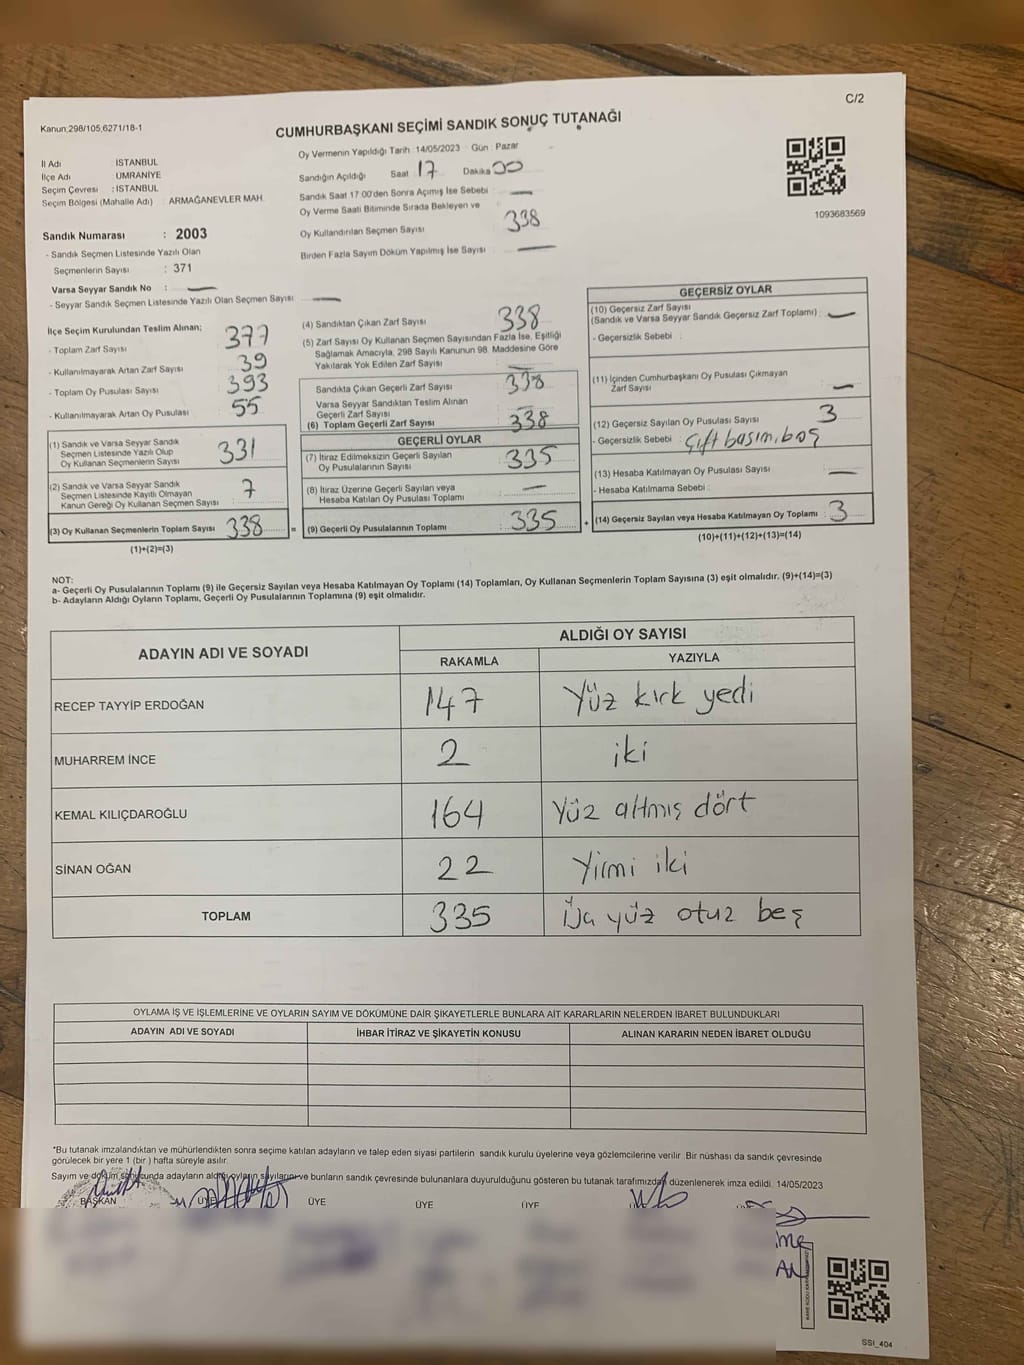 C/2
Kanun;298/105,6271/18-1
CUMHURBAŞKANI SEÇİMİ SANDIK SONUÇ TUTANAĞI
İl Adı İSTANBUL
İlçe Adı ÜMRANİYE
Seçim Çevresi : İSTANBUL
Seçim Bölgesi (Mahalle Adı) : ARMAĞANEVLER MAH.
Oy Vermenin Yapıldığı Tarih :14/05/2023 Gün : Pazar
Sandığın Açıldığı Saat 17 Dakika 00
Sandık Saat 17:00'den Sonra Açımış İse Sebebi : —
Oy Verme Saati Bitiminde Sırada Bekleyen ve
Oy Kullandırılan Seçmen Sayısı : 338
Birden Fazla Sayım Döküm Yapılmış İse Sayısı : —
1093683569
Sandık Numarası : 2003
- Sandık Seçmen Listesinde Yazılı Olan
Seçmenlerin Sayısı : 371
Varsa Seyyar Sandık No : —
- Seyyar Sandık Seçmen Listesinde Yazılı Olan Seçmen Sayısı : —
İlçe Seçim Kurulundan Teslim Alınan;
- Toplam Zarf Sayısı 377
- Kullanılmayarak Artan Zarf Sayısı 39
- Toplam Oy Pusulası Sayısı 393
- Kullanılmayarak Artan Oy Pusulası 55
(1) Sandık ve Varsa Seyyar Sandık
Seçmen Listesinde Yazılı Olup
Oy Kullanan Seçmenlerin Sayısı 331
(2) Sandık ve Varsa Seyyar Sandık
Seçmen Listesinde Kayıtlı Olmayan
Kanun Gereği Oy Kullanan Seçmen Sayısı 7
(3) Oy Kullanan Seçmenlerin Toplam Sayısı 338 =
(1)+(2)=(3)
(4) Sandıktan Çıkan Zarf Sayısı : 338
(5) Zarf Sayısı Oy Kullanan Seçmen Sayısından Fazla İse, Eşitliği
Sağlamak Amacıyla, 298 Sayılı Kanunun 98. Maddesine Göre
Yakılarak Yok Edilen Zarf Sayısı : —
Sandıkta Çıkan Geçerli Zarf Sayısı : 338
Varsa Seyyar Sandıktan Teslim Alınan
Geçerli Zarf Sayısı : —
(6) Toplam Geçerli Zarf Sayısı : 338
GEÇERLİ OYLAR
(7) İtiraz Edilmeksizin Geçerli Sayılan
Oy Pusulalarının Sayısı : 335
(8) İtiraz Üzerine Geçerli Sayılan veya
Hesaba Katılan Oy Pusulası Toplamı : —
(9) Geçerli Oy Pusulalarının Toplamı : 335 +
GEÇERSİZ OYLAR
(10) Geçersiz Zarf Sayısı
(Sandık ve Varsa Seyyar Sandık Geçersiz Zarf Toplamı) : —
- Geçersizlik Sebebi :
(11) İçinden Cumhurbaşkanı Oy Pusulası Çıkmayan
Zarf Sayısı : —
(12) Geçersiz Sayılan Oy Pusulası Sayısı : 3
- Geçersizlik Sebebi : Çift basım, boş
(13) Hesaba Katılmayan Oy Pusulası Sayısı : —
- Hesaba Katılmama Sebebi :
(14) Geçersiz Sayılan veya Hesaba Katılmayan Oy Toplamı : 3
(10)+(11)+(12)+(13)=(14)
NOT:
a- Geçerli Oy Pusulalarının Toplamı (9) ile Geçersiz Sayılan veya Hesaba Katılmayan Oy Toplamı (14) Toplamları, Oy Kullanan Seçmenlerin Toplam Sayısına (3) eşit olmalıdır. (9)+(14)=(3)
b- Adayların Aldığı Oyların Toplamı, Geçerli Oy Pusulalarının Toplamına (9) eşit olmalıdır.
ADAYIN ADI VE SOYADI
ALDIĞI OY SAYISI
RAKAMLA YAZIYLA
RECEP TAYYİP ERDOĞAN 147 Yüz kırk yedi
MUHARREM İNCE 2 iki
KEMAL KILIÇDAROĞLU 164 Yüz altmış dört
SİNAN OĞAN 22 Yirmi iki
TOPLAM 335 yüz otuz beş
OYLAMA İŞ VE İŞLEMLERİNE VE OYLARIN SAYIM VE DÖKÜMÜNE DAİR ŞİKAYETLERLE BUNLARA AİT KARARLARIN NELERDEN İBARET BULUNDUKLARI
ADAYIN ADI VE SOYADI İHBAR İTİRAZ VE ŞİKAYETİN KONUSU ALINAN KARARIN NEDEN İBARET OLDUĞU
*Bu tutanak imzalandıktan ve mühürlendikten sonra seçime katılan adayların ve talep eden siyasi partilerin sandık kurulu üyelerine veya gözlemcilerine verilir. Bir nüshası da sandık çevresinde
görülecek bir yere 1 (bir) hafta süreyle asılır.
Sayım ve döküm sonucunda adayların aldığı oyların sayıları ve bunların sandık çevresinde bulunanlara duyurulduğunu gösteren bu tutanak tarafımızdan düzenlenerek imza edildi. 14/05/2023
BAŞKAN ÜYE ÜYE ÜYE ÜYE
SSI_404